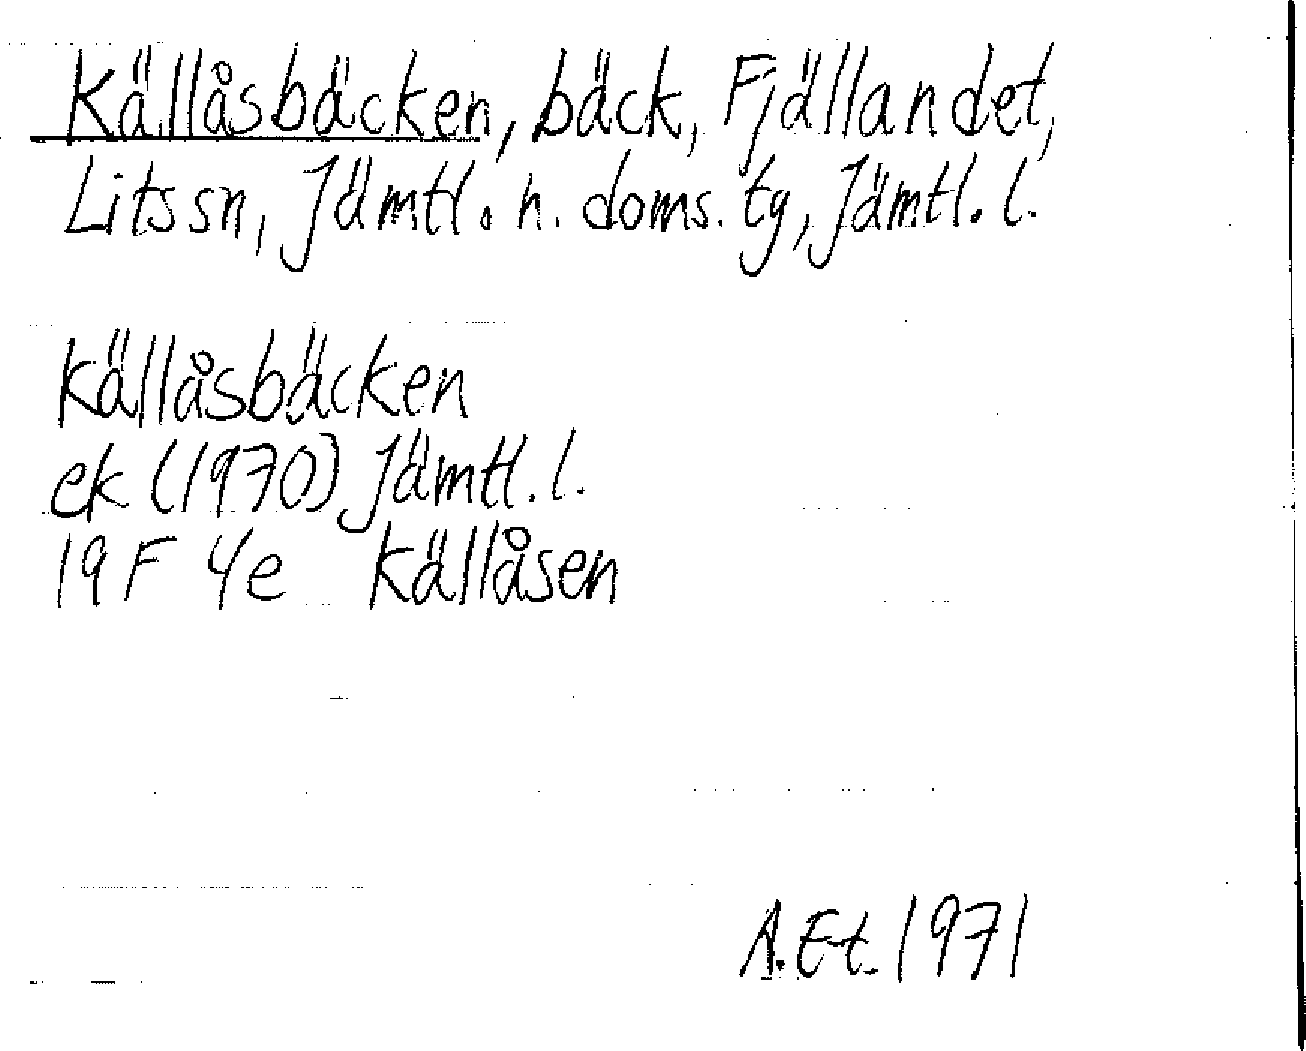 Källåsbäcken, bäck, Fjällandet,
Lits sn, Jämtl. n. doms. tg, Jämtl. l.
Källåsbäcken
ek (1970) Jämtl. l.
19 F 4e Källåsen
A. Et. 1971